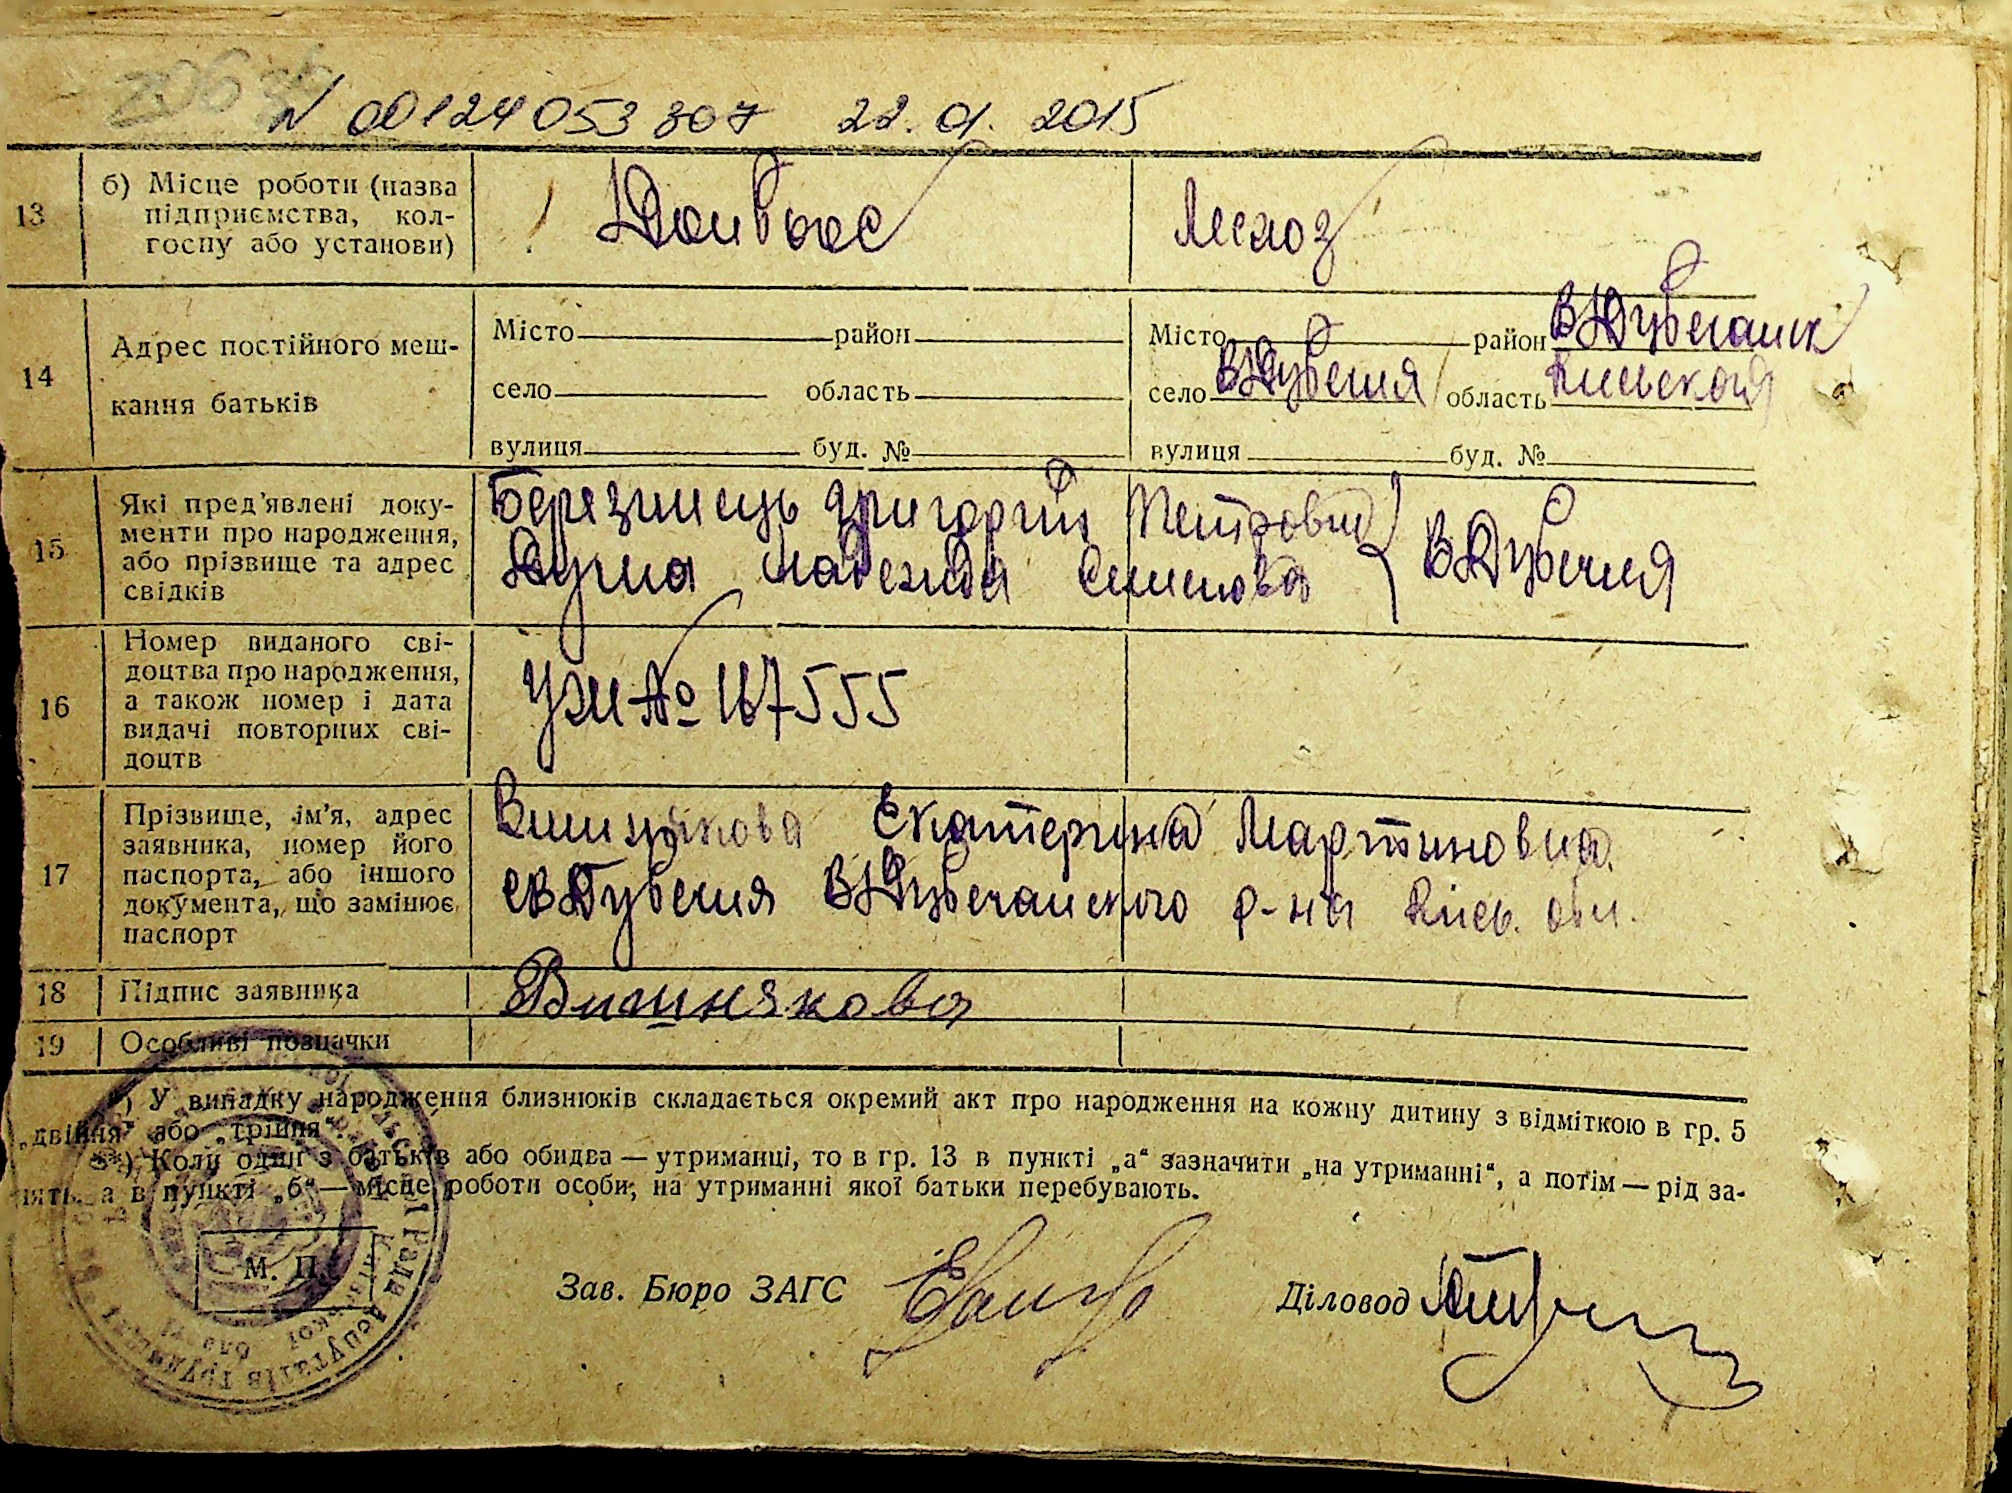 N 00124053307 22.01.2015
13 б) Місце роботи (назва підприємства, кол-
госпу або установи)
Донбас
Лесхоз
14 Адрес постійного меш-
кання батьків
Місто район
село область
вулиця буд. №
Місто район В Дубечанск
село В Дубечня область Киевской
вулиця буд. №
15 Які пред'явлені доку-
менти про народження,
або прізвище та адрес
свідків
Березинець Григорій Петрович
надежда В Дубечня
16 Номер виданого сві-
доцтва про народження,
а також номер і дата
видачі повторних сві-
доцтв
№ 167555
17 Прізвище, ім'я, адрес
заявника, номер його
паспорта, або іншого
документа, що замінює
паспорт
Вишнякова Екатерина Мартиновна
с В Дубечня В Дубечанского р-на Киев. обл.
18 Підпис заявника
Вишнякова
19 Особливі позначки
*) У випадку народження близнюків складається окремий акт про народження на кожну дитину з відміткою в гр. 5
„двійня" або „трійня".
**) Коли один з батьків або обидва — утриманці, то в гр. 13 в пункті „а" зазначити „на утриманні", а потім — рід за-
нять, а в пункті „б" — місце роботи особи, на утриманні якої батьки перебувають.
М. П.
Зав. Бюро ЗАГС
Діловод